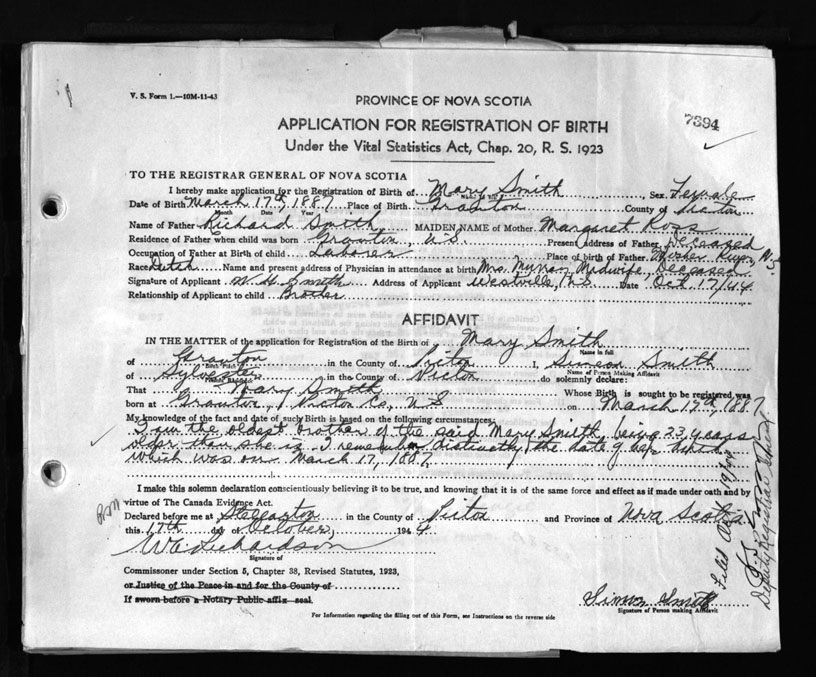 V. S. Form 1.—10M-11-43
PROVINCE OF NOVA SCOTIA
7394
APPLICATION FOR REGISTRATION OF BIRTH
Under the Vital Statistics Act, Chap. 20, R. S. 1923
TO THE REGISTRAR GENERAL OF NOVA SCOTIA
I hereby make application for the Registration of Birth of Mary Smith, Sex Female
Name in full
Date of Birth March 17th, 1887 Place of Birth Granton County of Pictou
Month Date Year
Name of Father Richard Smith MAIDEN NAME of Mother Margaret Ross
Residence of Father when child was born Granton, N.S. Present address of Father Deceased
Occupation of Father at Birth of child Laborer Place of birth of Father River, N.S.
Race Dutch Name and present address of Physician in attendance at birth Mrs. Murray Midwife, Deceased
Signature of Applicant W. H. Smith Address of Applicant Westville, N.S. Date Oct 17/44
Relationship of Applicant to child Brother
AFFIDAVIT
IN THE MATTER of the application for Registration of the Birth of Mary Smith
Name in full
of Granton in the County of Pictou I, Simon Smith
Birth Place
Name of Person Making Affidavit
of Sylvester in the County of Pictou do solemnly declare:
That Mary Smith Whose Birth is sought to be registered was
born at Granton, Pictou Co., N.S on March 17th, 1887
My knowledge of the fact and date of such Birth is based on the following circumstances:
I am the oldest brother of the said Mary Smith, being 23 years
older than she is. I remember distinctly the date of her birth
which was on March 17, 1887
I make this solemn declaration conscientiously believing it to be true, and knowing that it is of the same force and effect as if made under oath and by
virtue of The Canada Evidence Act.
Declared before me at Stellarton in the County of Pictou and Province of Nova Scotia
this 17th day of October, 1944
W Richardson
Signature of
Commissioner under Section 5, Chapter 38, Revised Statutes, 1923,
or Justice of the Peace in and for the County of
If sworn before a Notary Public affix seal.
Simon Smith
Signature of Person making Affidavit
For Information regarding the filling out of this Form, see Instructions on the reverse side
Filed Oct 19/44
Deputy Registrar General